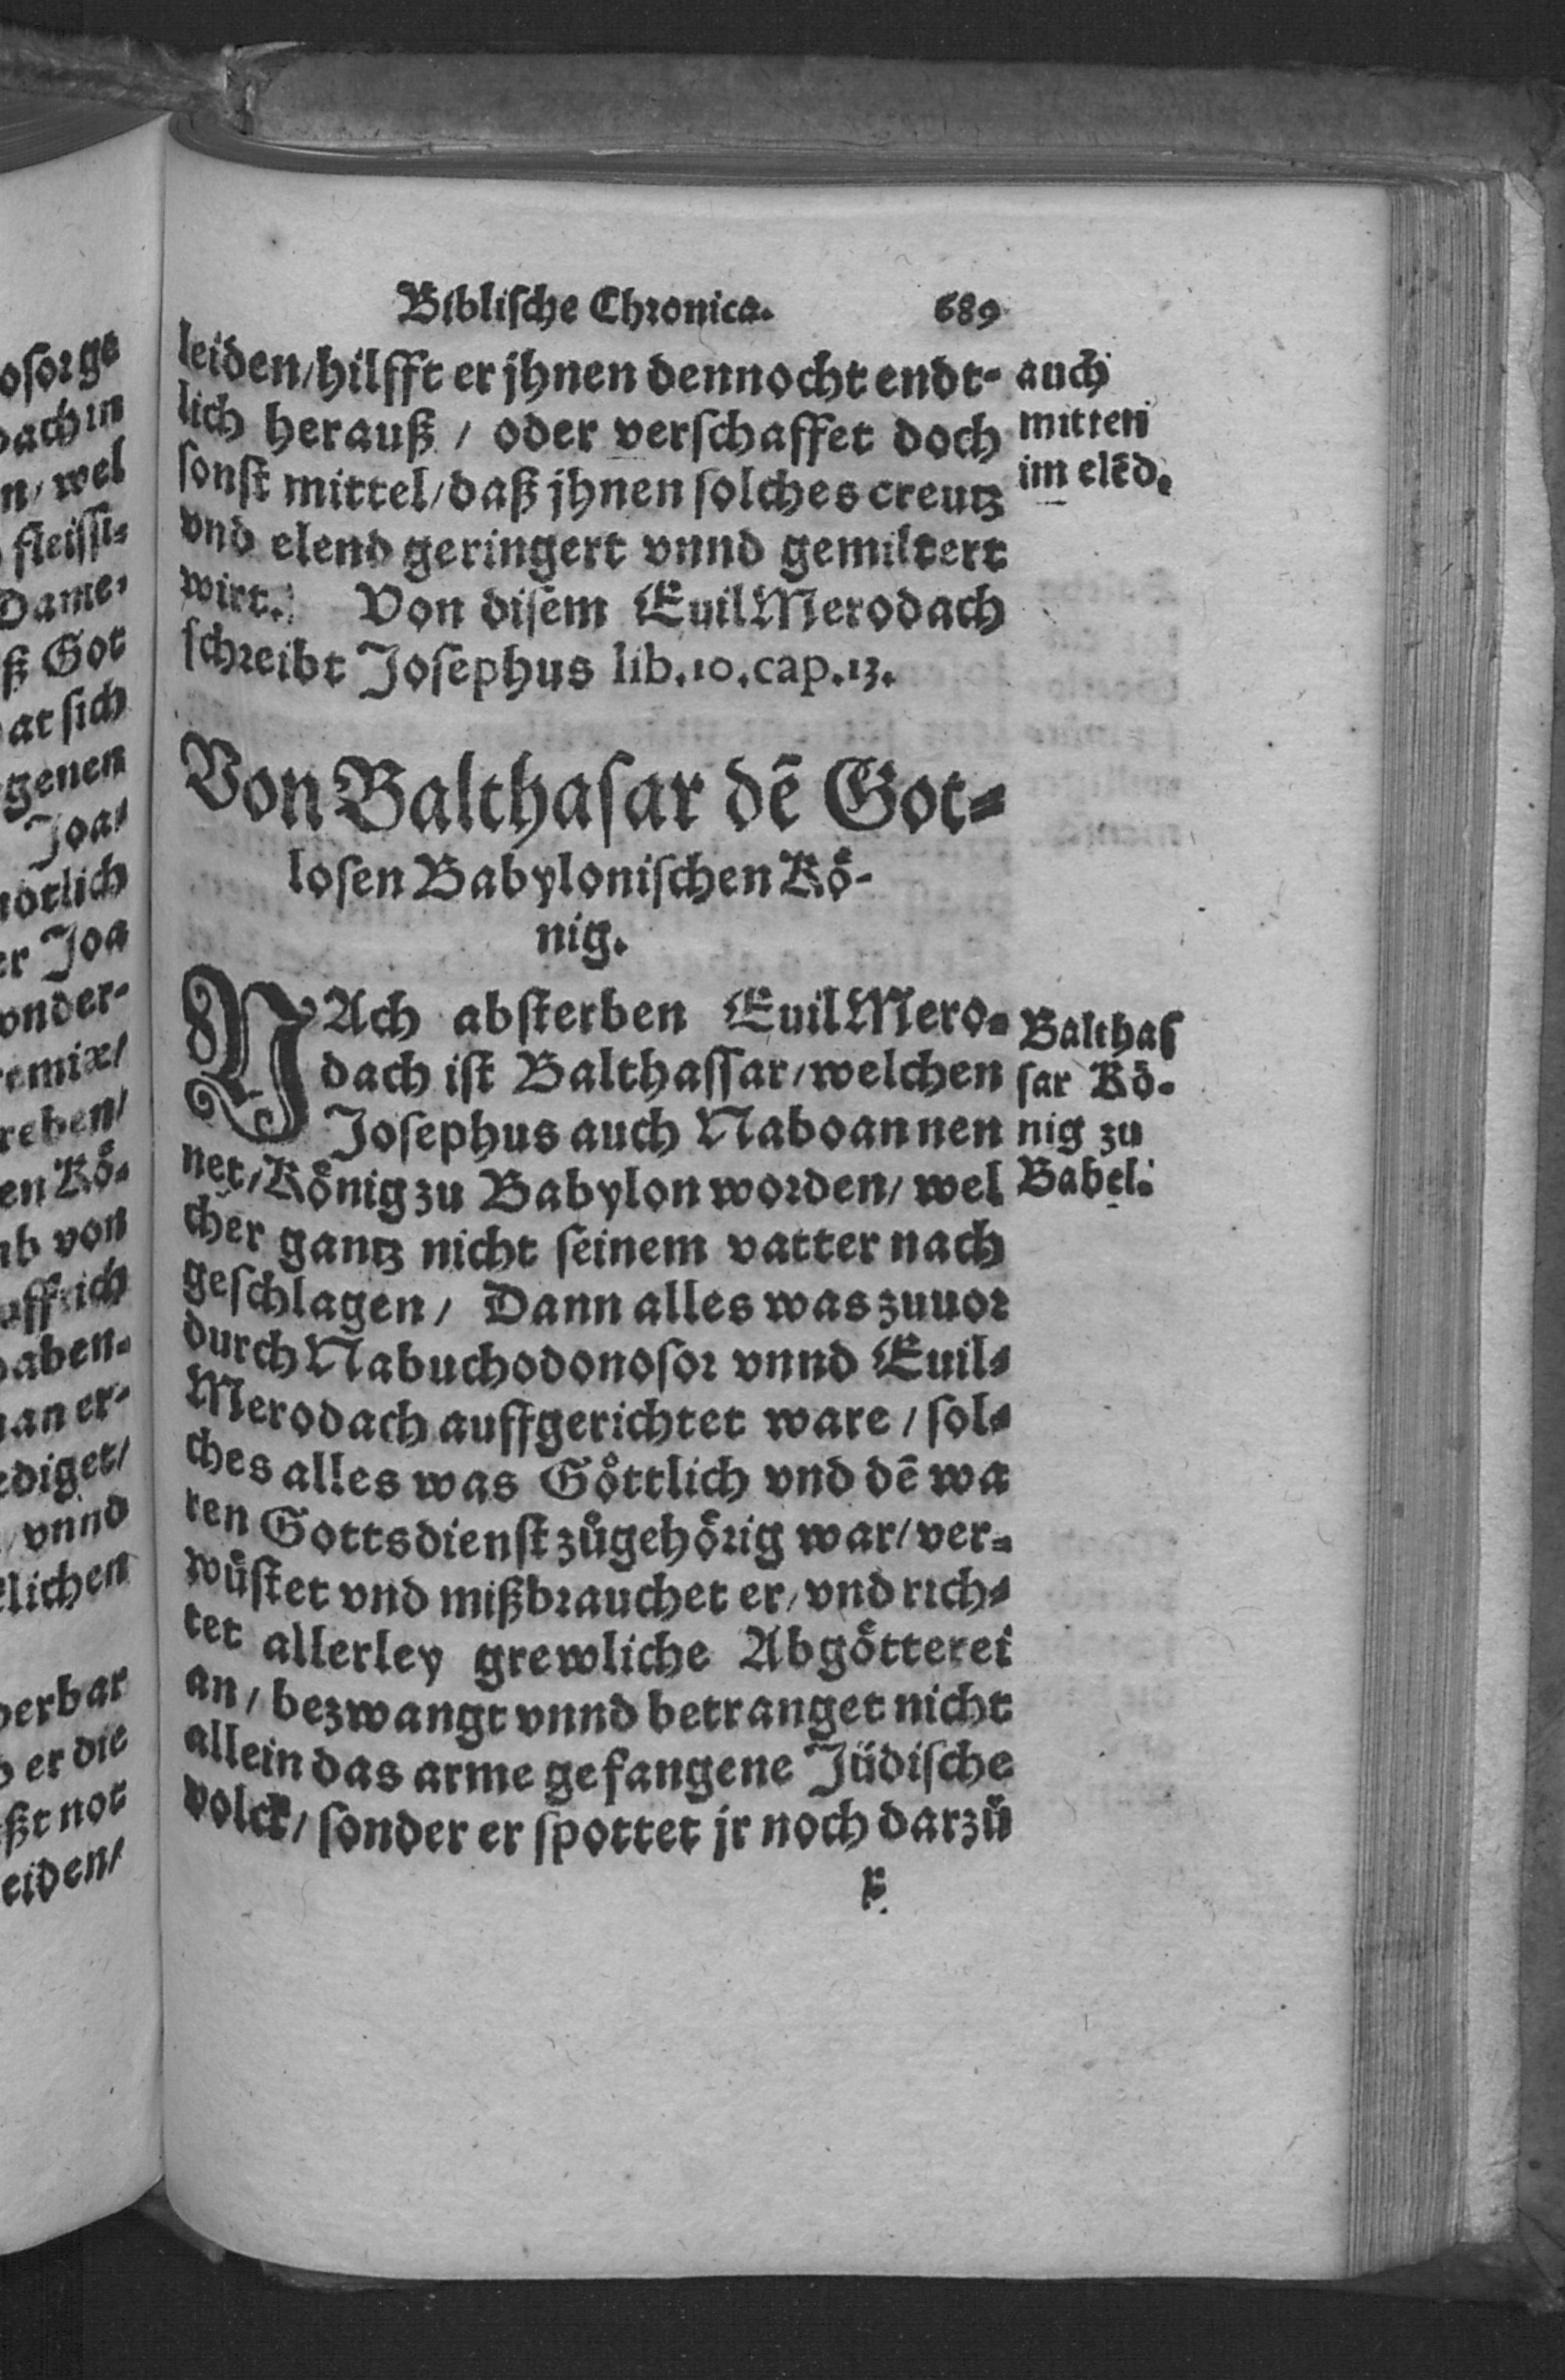 Biblische Chronica. 689
leiden/hilfft er jhnen dennocht endt-
lich herauß / oder verschaffet doch
sonst mittel/daß jhnen solches creutz
vnd elend geringert vnnd gemiltert
wirt. Von disem EuilMerodach
schreibt Josephus lib.10.cap.13.
auch
mitten
im elēd.
Von Balthasar dē Got-
losen Babylonischen Kö-
nig.
NAch absterben EuilMero-
dach ist Balthassar/welchen
Josephus auch Naboan nen
net/König zu Babylon worden/ wel
cher gantz nicht seinem vatter nach
geschlagen/ Dann alles was zuuor
durch Nabuchodonosor vnnd Euil-
Merodach auffgerichtet ware / sol-
ches alles was Göttlich vnd dē wa
ren Gottsdienst zůgehörig war/ver-
wüstet vnd mißbrauchet er/vnd rich-
tet allerley grewliche Abgötterei
an/ bezwangt vnnd betranget nicht
allein das arme gefangene Jüdische
volck/ sonder er spottet jr noch darzů
Balthas
sar Kö-
nig zu
Babel.
r
osorge
dach in
n/ wel
fleissi-
Dame-
ß Got
at sich
genen
Joa-
nötlich
er Joa
onder-
remix/
reben/
en Kö-
ab von
aben-
an er-
ediget/
/vnnd
lichen
derbar
er die
ßt not
eiden/